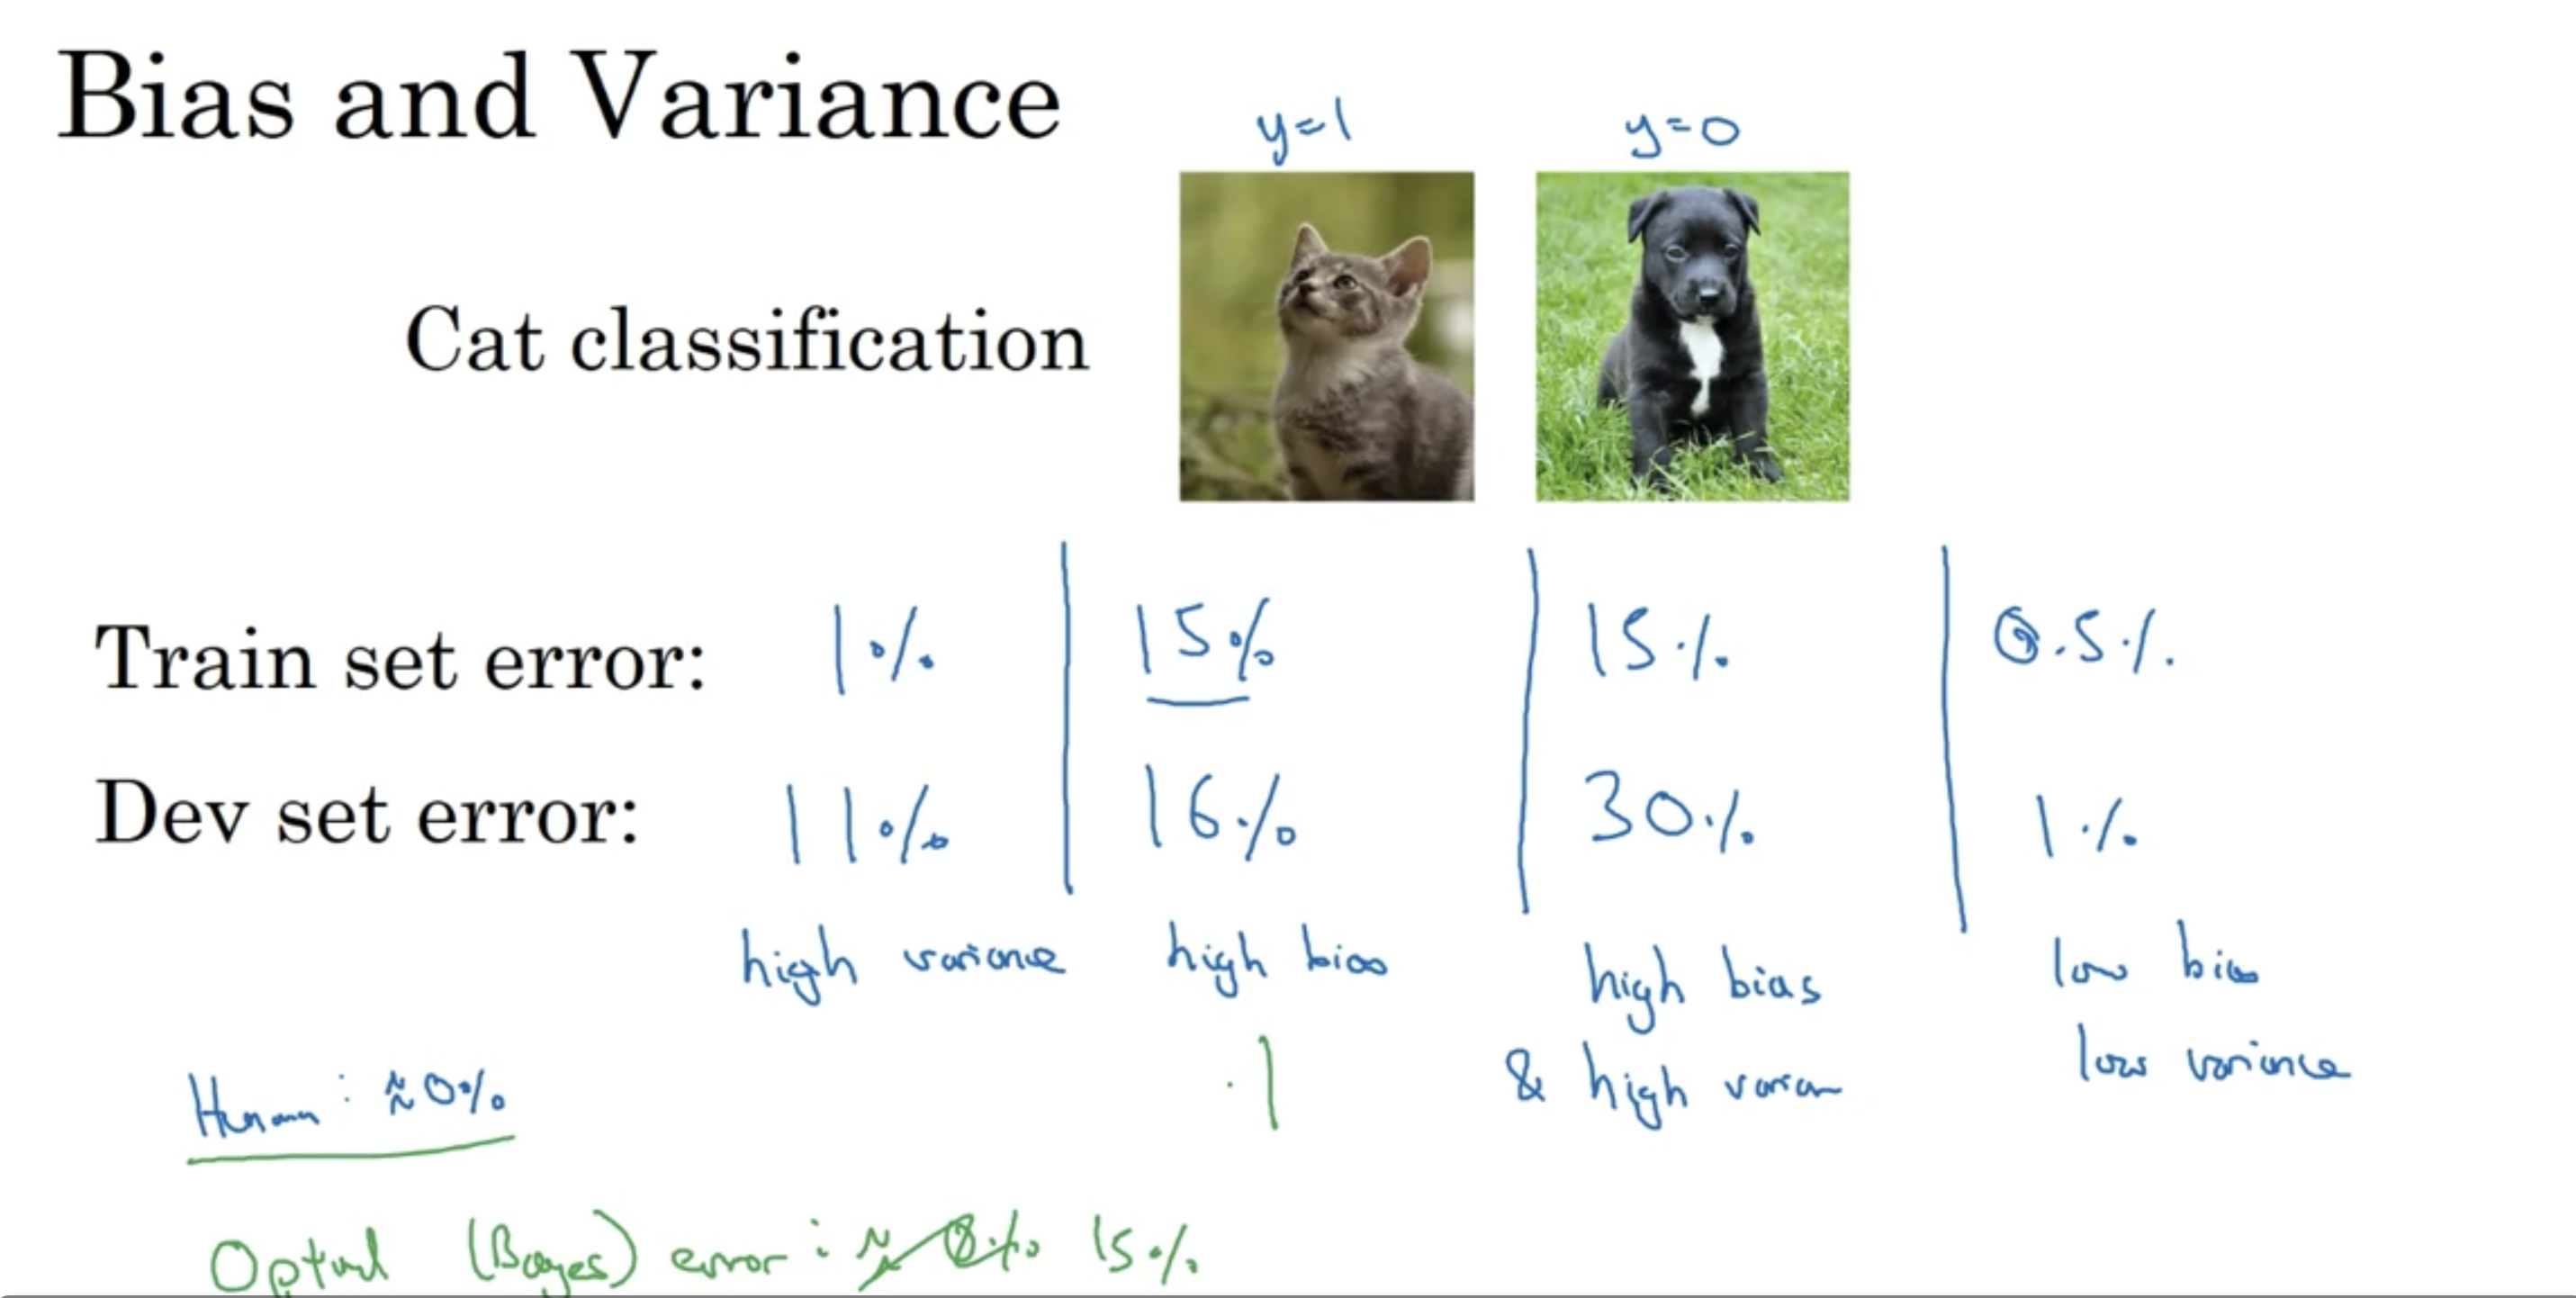 Bias and Variance
y=1 y=0
Cat classification
Train set error: 1% 15% 15% 0.5%
Dev set error: 11% 16% 30% 1%
high variance high bias high bias low bias
& high varian low variance
Human: ≈0%
Optimal (Bayes) error: ≈ 0% 15%